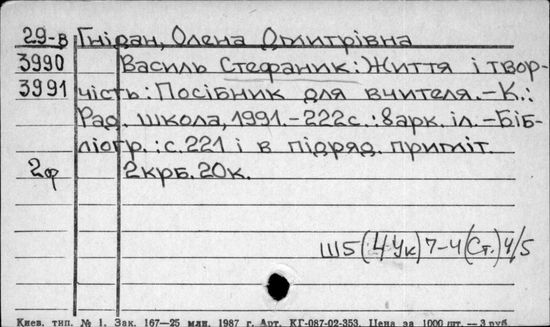 29-в Гнідан, Олена Дмитрівна
3990 Василь Стефаник: Життя і твор-
3991 чість: Посібник для вчителя.-К.:
Рад. школа, 1991.-222с.: 8арк. іл.-Біб-
ліогр.: с.221 і в підряд. приміт.
2ф 2крб. 20к.
Ш5(4Ук)7-4(Ст.)4/5
Киев. тип. № 1. Зак. 167—25 млн. 1987 г. Арт. КГ-087-02-353. Цена за 1000 шт. — 3 руб.